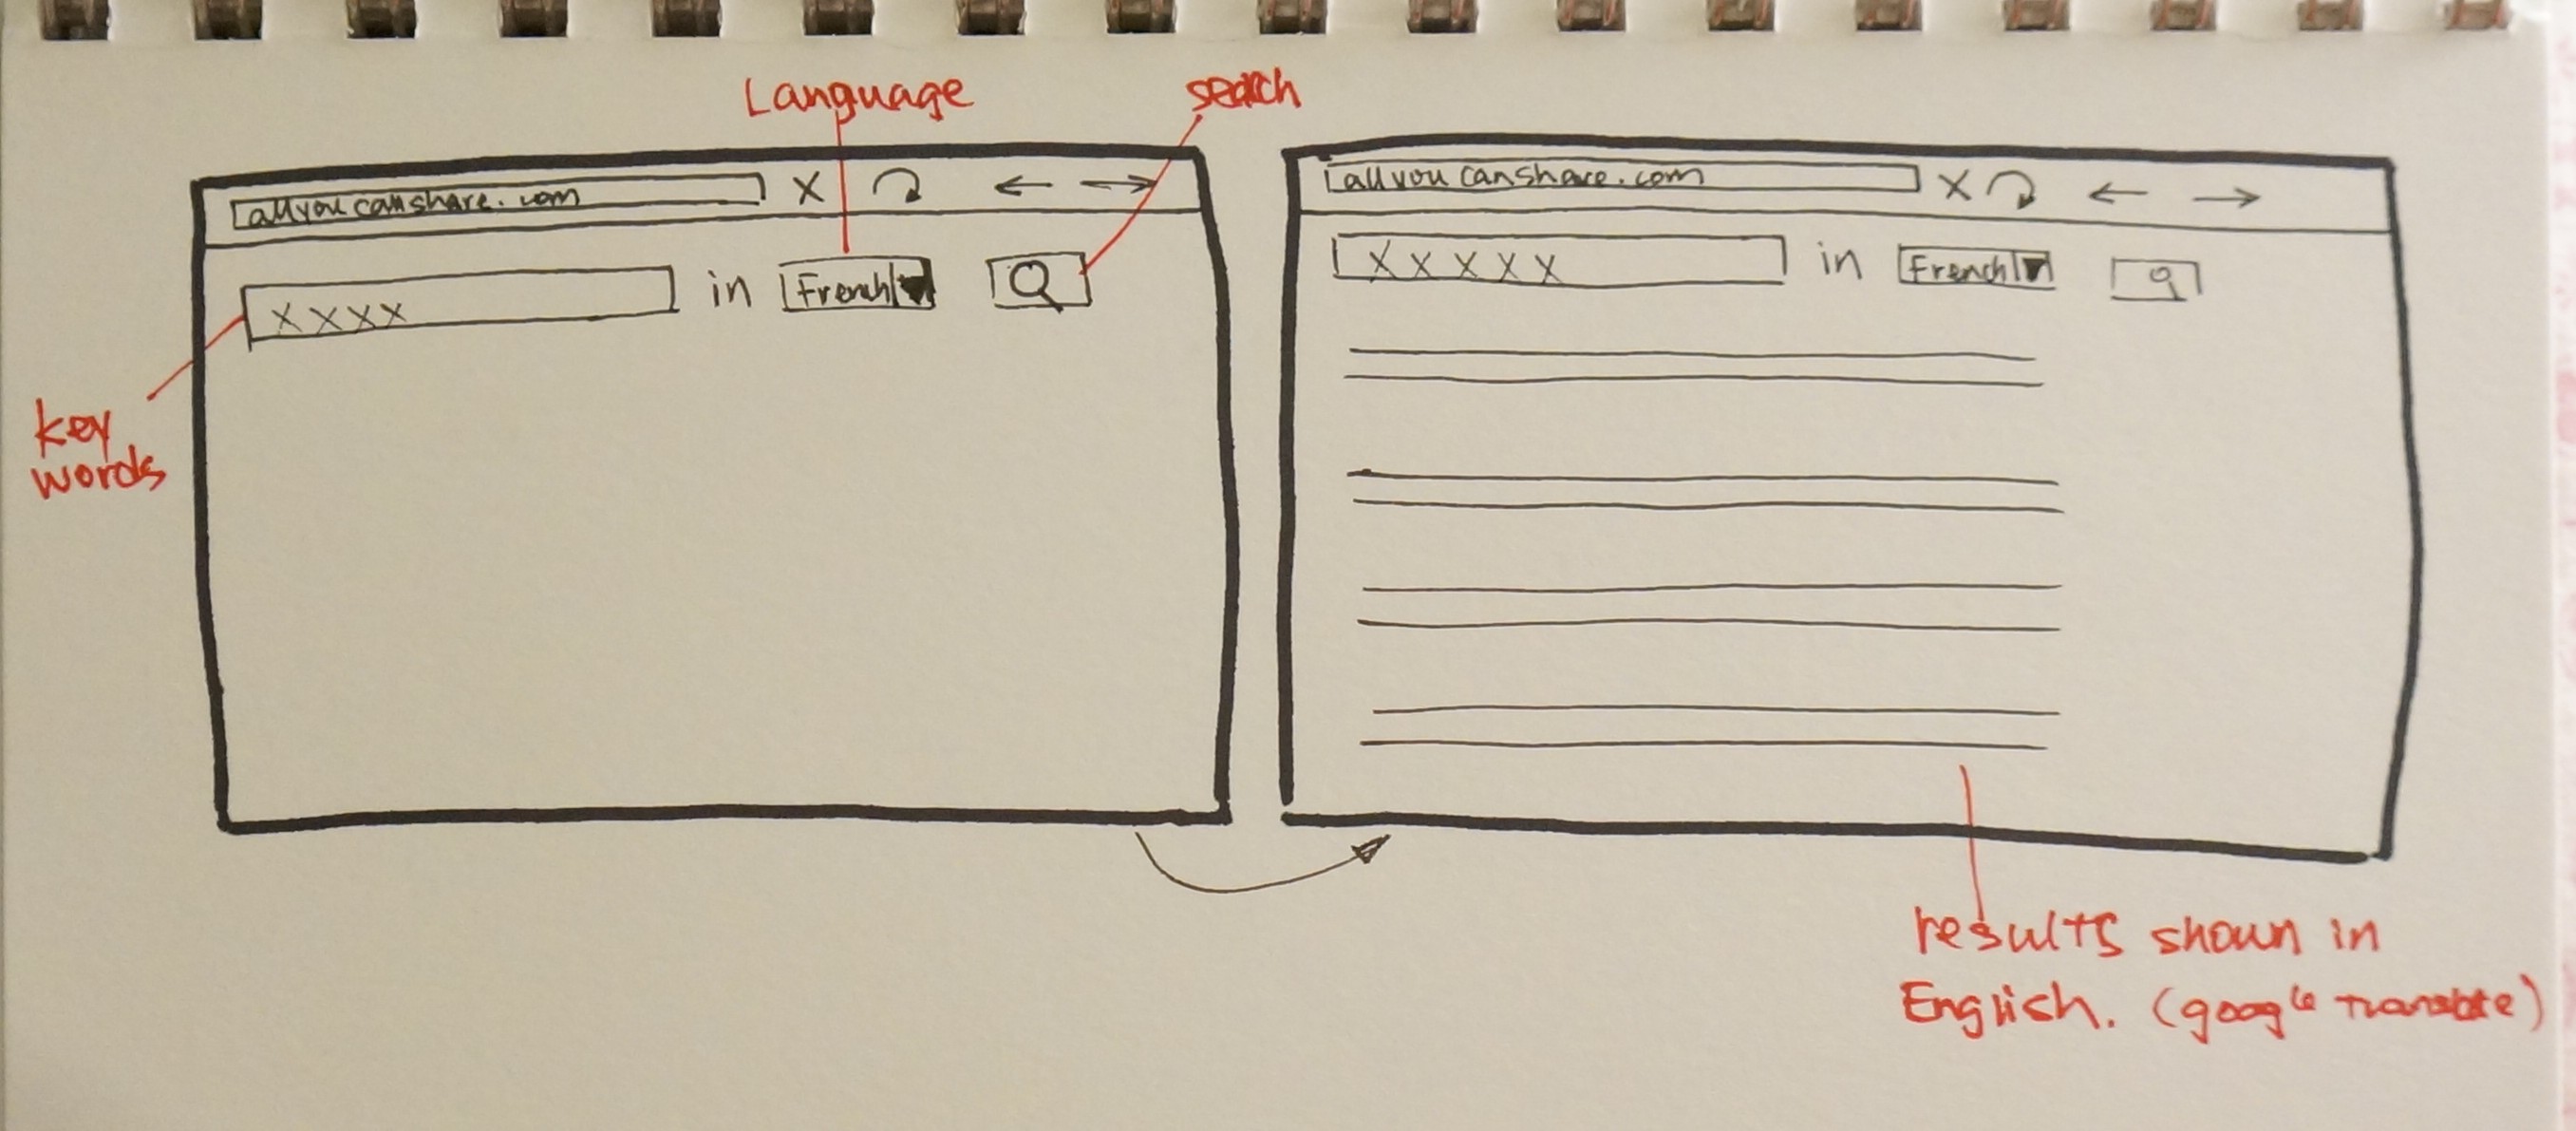 Language
search
allyoucanshare.com X
xxxx in French
key
words
allyoucanshare.com X
X X X X X in French
results shown in
English. (google translate)